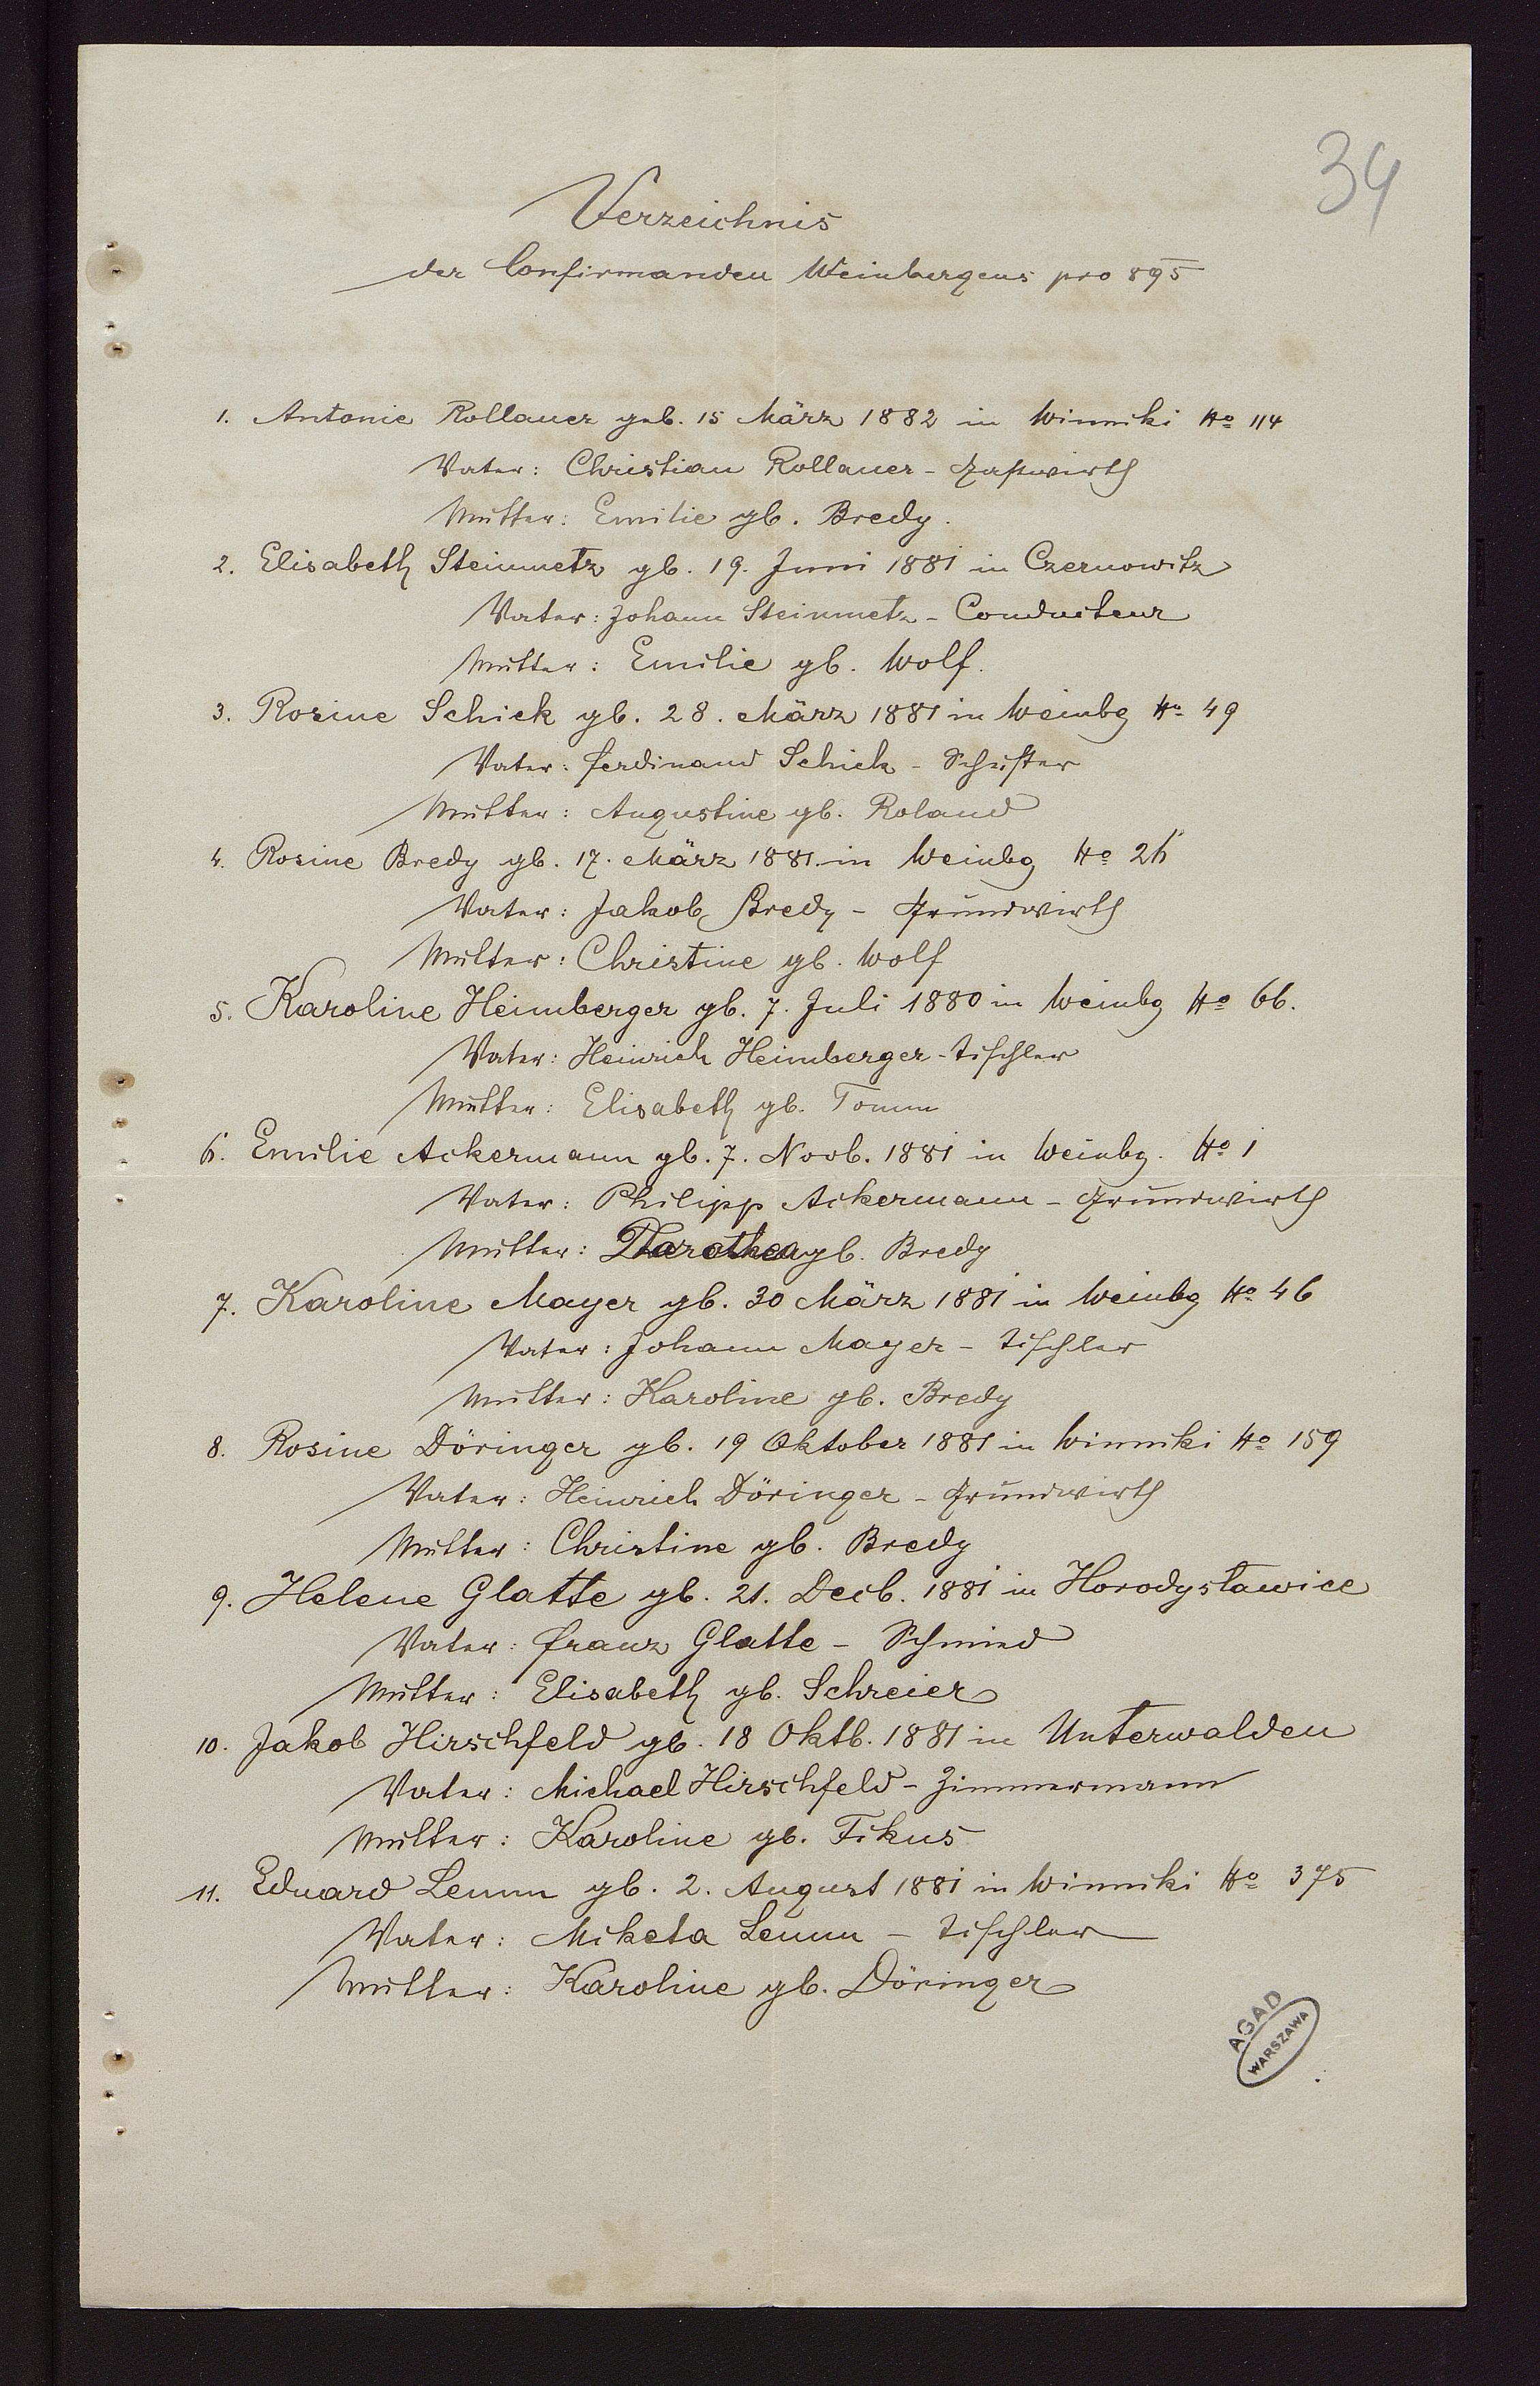 34
Verzeichnis
der Confirmanden Weinbergens pro 895
1. Antonie Rollauer geb. 15 März 1882 in Winniki No 114
Vater: Christian Rollauer - Gastwirth
Mutter: Emilie gb. Bredy.
2. Elisabeth Steinmetz gb. 19. Juni 1881 in Czernowitz
Vater: Johann Steinmetz - Conducteur
Mutter: Emilie gb. Wolf.
3. Rosine Schick gb. 28. März 1881 in Weinbg No 49
Vater: Ferdinand Schick - Schuster
Mutter: Augustine gb. Roland
4. Rosine Bredy gb. 17. März 1881 in Weinbg No 26
Vater: Jakob Bredy - Grundwirth
Mutter: Christine gb. Wolf
5. Karoline Heimberger gb. 7. Juli 1880 in Weinbg No 66.
Vater: Heinrich Heimberger - Tischler
Mutter: Elisabeth gb. Tomm
6. Emilie Ackermann gb. 7. Novb. 1881 in Weinbg. No 1
Vater: Philipp Ackermann - Grundwirth
Mutter: Dorothea gb. Bredy
7. Karoline Mayer gb. 30 März 1881 in Weinbg No 46
Vater: Johann Mayer - Tischler
Mutter: Karoline gb. Bredy
8. Rosine Döringer gb. 19 Oktober 1881 in Winniki No 159
Vater: Heinrich Döringer - Grundwirth
Mutter: Christine gb. Bredy
9. Helene Glatte gb. 21. Decb. 1881 in Horodysławice
Vater: Franz Glatte - Schmied
Mutter: Elisabeth gb. Schreier
10. Jakob Hirschfeld gb. 18 Oktb. 1881 in Unterwalden
Vater: Michael Hirschfeld - Zimmermann
Mutter: Karoline gb. Fikus
11. Eduard Lemm gb. 2. August 1881 in Winniki No 375
Vater: Miketa Lemm - Tischler
Mutter: Karoline gb. Döringer
AGAD
WARSZAWA